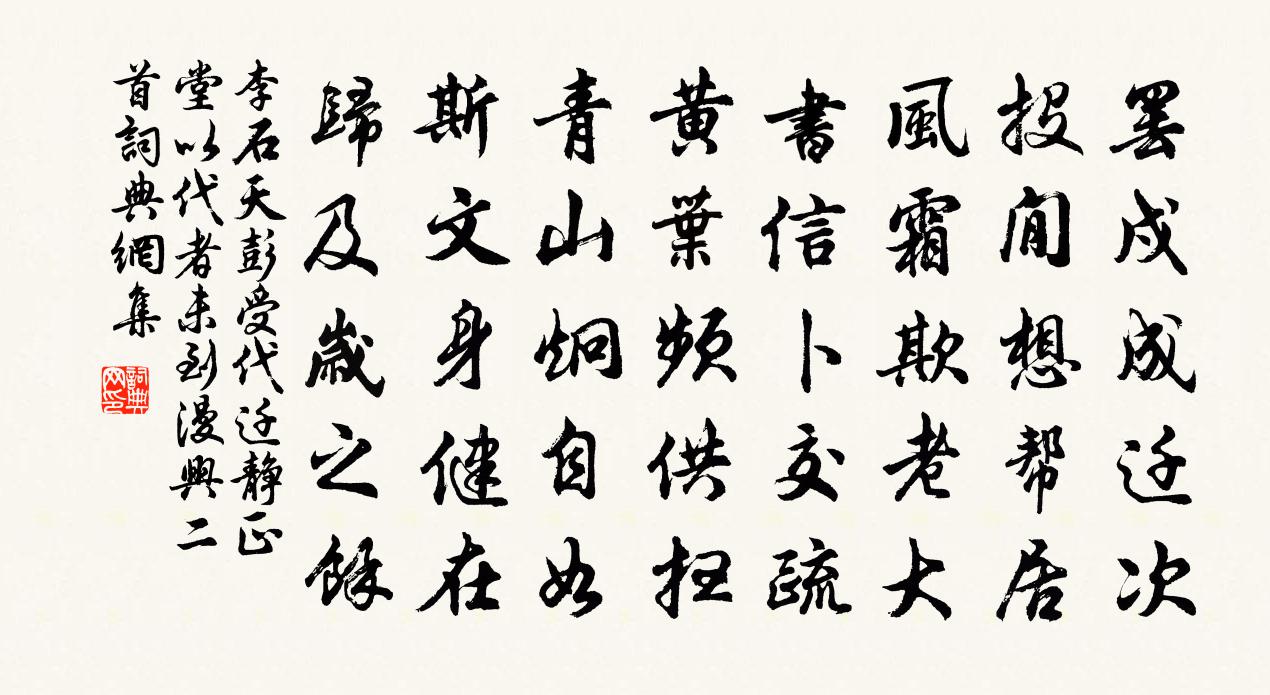 罢戍成迁次
投閒想帮居
風霜欺老大
書信卜交疏
黄葉頻供扫
青山炯自如
斯文身健在
歸及歲之餘
李石天彭受代迁静正
堂以代者未到漫興二
首詞典網集
詞典网印